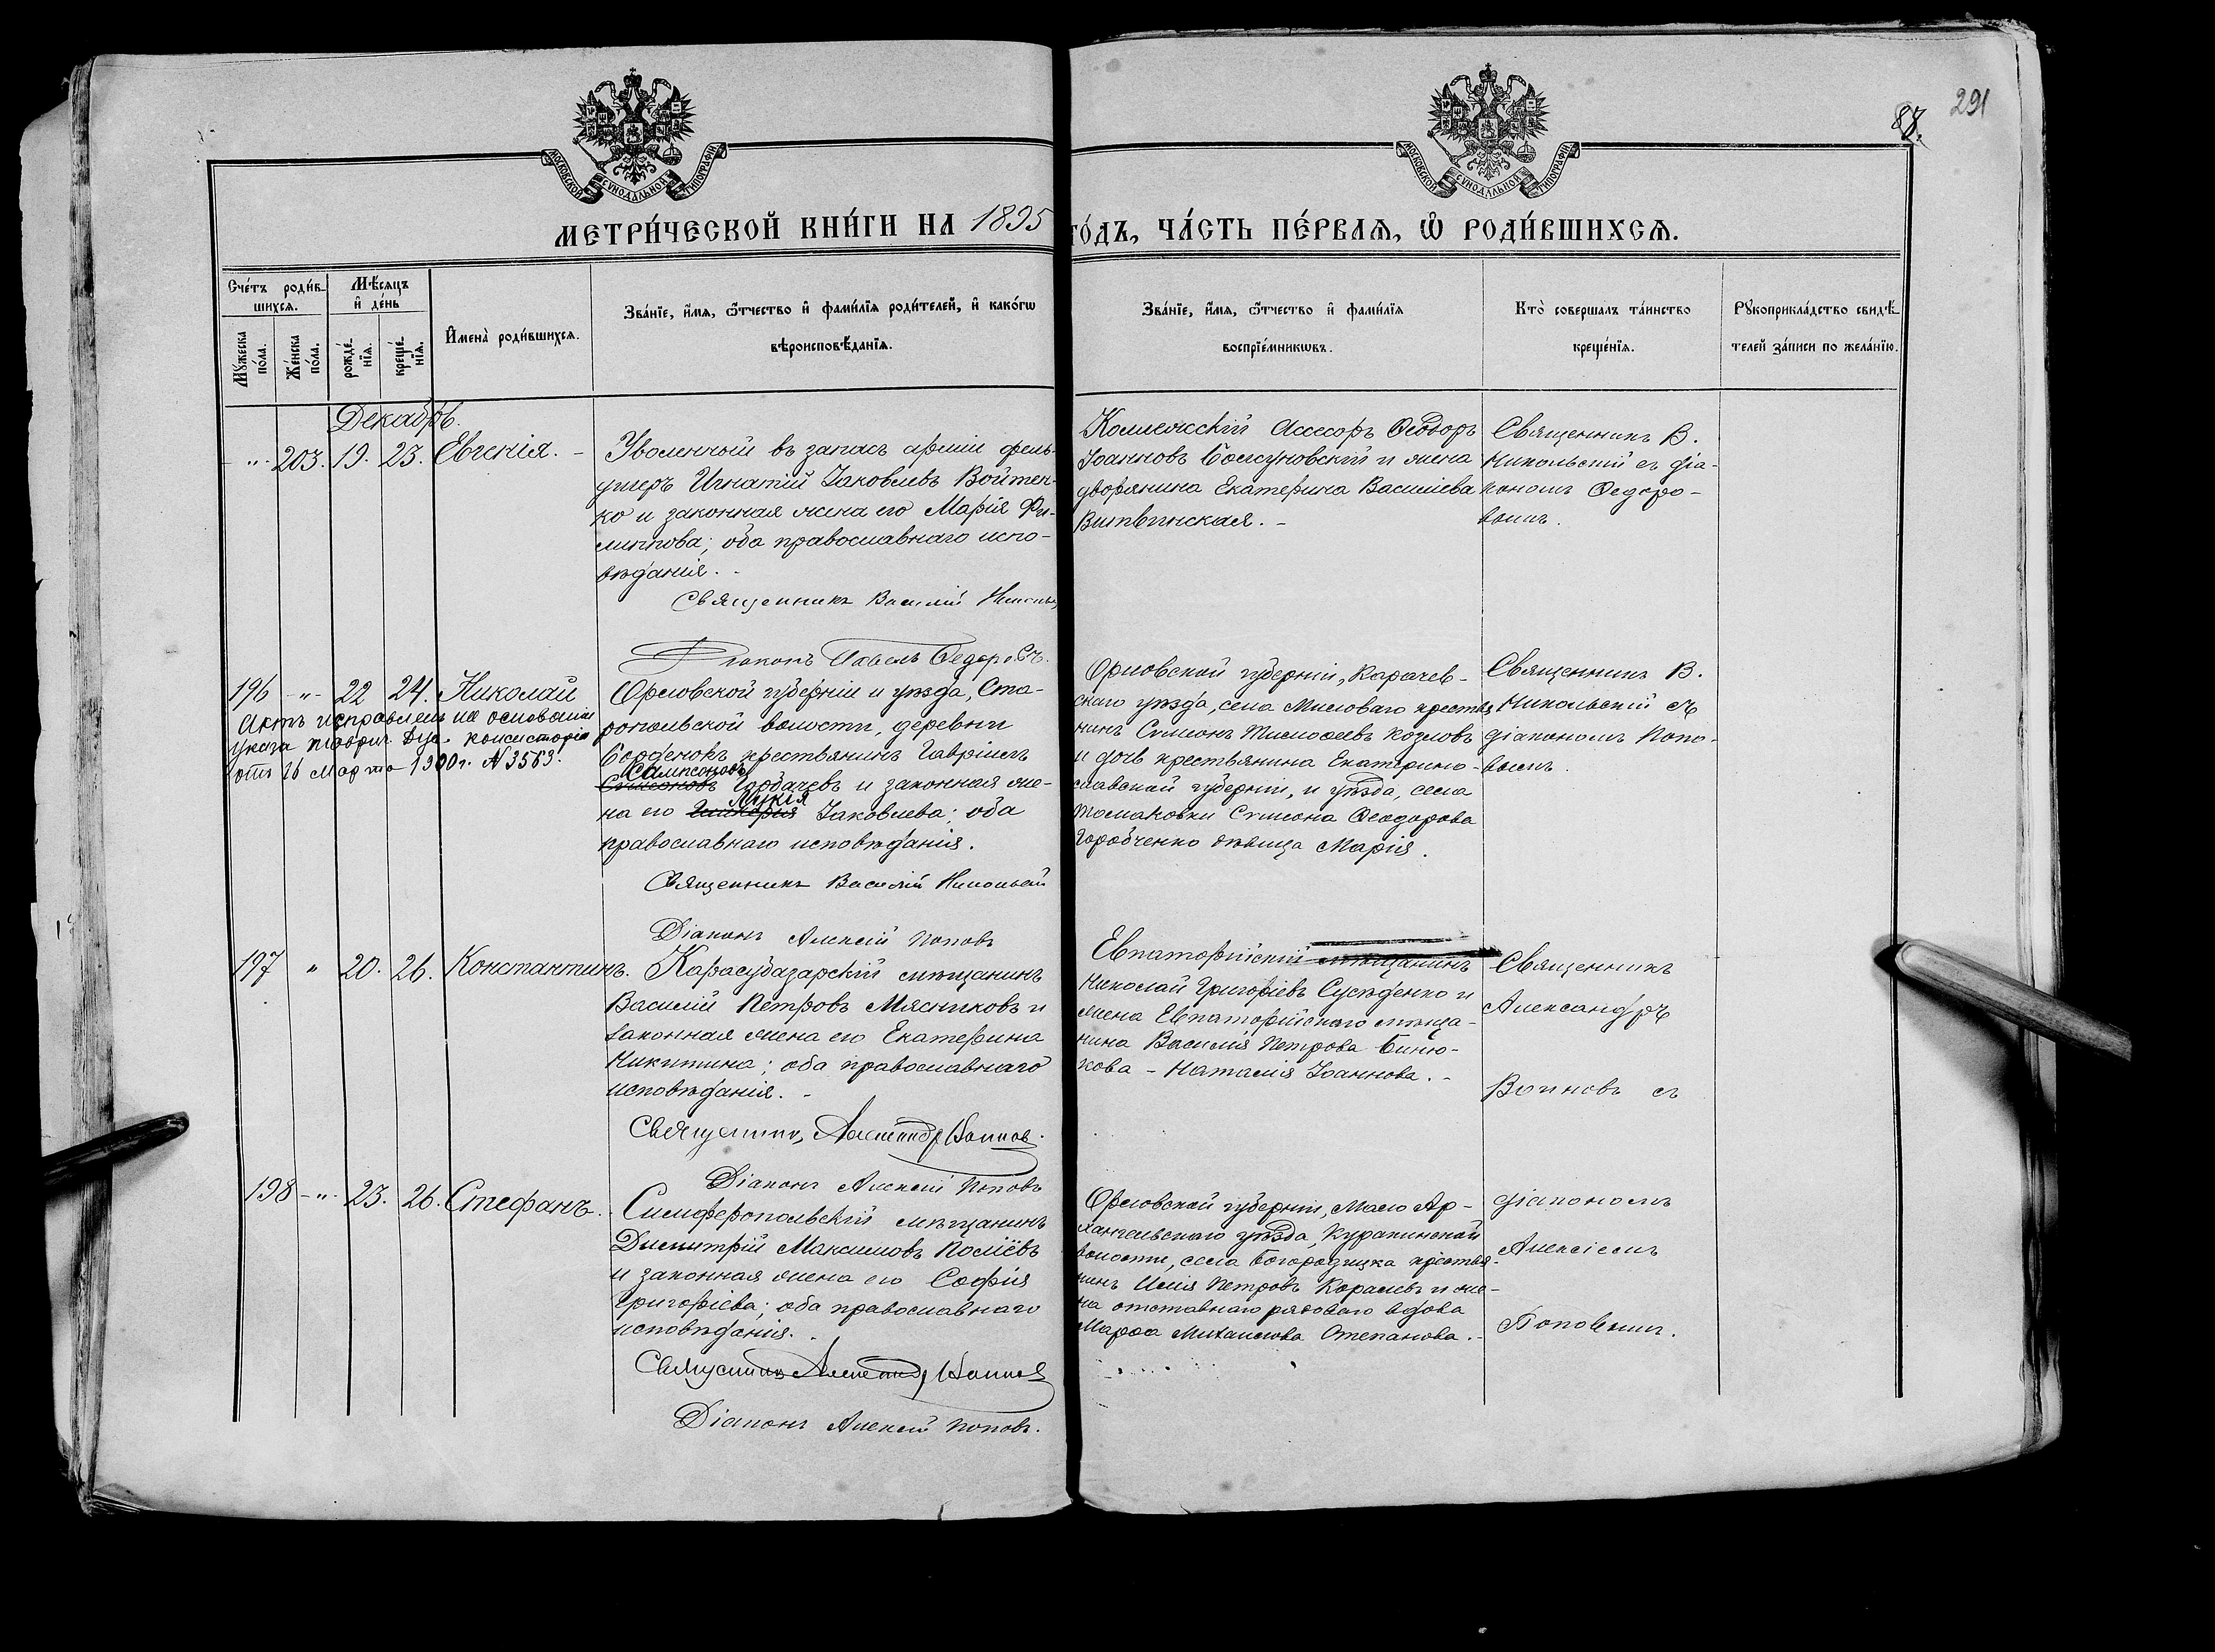 291
88.
МОСКОВСКОЙ СѴНОДАЛЬНОЙ ТИПОГРАФІИ
МОСКОВСКОЙ СѴНОДАЛЬНОЙ ТИПОГРАФІИ
МЕТРИ́ЧЕСКОЙ КНИ́ГИ НА 1895 ГО́ДЪ, ЧА́СТЬ ПЕ́РВАѦ, Ѽ РОДИ́ВШИХСѦ.
Сче́тъ роди́в-
шихсѧ.
Мꙋ́жеска по́ла.
Же́нска по́ла.
Мѣ́сѧцъ
и҆ де́нь
рожде́-
нїѧ.
креще́-
нїѧ.
И҆мена̀ роди́вшихсѧ.
Зва́нїе, и҆́мѧ, ѻ҆́тчество и҆ фами́лїѧ роди́телей, и҆ како́гѡ
вѣроисповѣ́данїѧ.
Зва́нїе, и҆́мѧ, ѻ҆́тчество и҆ фами́лїѧ
воспрїе́мникѡвъ.
Кто̀ соверша́лъ та́инство
креще́нїѧ.
Рꙋкоприкла́дство свидѣ́-
телей за́писи по жела́нїю.
Декабрь.
" 203. 19. 23. Евгенія.
Уволенный въ запасъ арміи фель-
дшеръ Игнатій Іаковлевъ Войтен-
ко и законная жена его Марія Фи-
липпова; оба православнаго испо-
вѣданія.
Священникъ Василій
Діаконъ Павелъ Федоровъ.
Коллежскій Ассесоръ Ѳеодоръ
Іоанновъ Болсуновскій и жена
дворянина Екатерина Василіева
Витвинская.
Священникъ В.
Никольскій съ діа-
кономъ Федоро-
вымъ.
196 " 22 24. Николай
Актъ исправленъ на основаніи
указа Таврич. Дух. Консисторіи
отъ 26 Марта 1900 г. № 3583.
Орловской губерніи и уѣзда, Ста-
ропольской волости, деревни
крестьянинъ Гавріилъ
Сампсоновъ
Симеоновъ Горбачевъ и законная же-
Лукія
на его Гликерія Іаковлева; оба
православнаго исповѣданія.
Священникъ Василій Никольскій
Діаконъ Алексій Поповъ
Орловской губерніи, Карачев-
скаго уѣзда, села Милованаго крестья
нинъ Симеонъ Тимоѳеевъ Козловъ
и дочь крестьянина Екатерино-
славской губерніи, и уѣзда, села
Томаковки Симеона Ѳеодорова
Горобченко дѣвица Марія.
Священникъ В.
Никольскій съ
діакономъ Попо-
вымъ.
197 " 20. 26. Константинъ.
Карасубазарскій мѣщанинъ
Василій Петровъ Мясниковъ и
законная жена его Екатерина
Никитина; оба православнаго
исповѣданія.
Священникъ Александръ Воиновъ.
Діаконъ Алексій Поповъ
Евпаторійскій мѣщанинъ
Николай Григоріевъ Сусѣденко и
жена Евпаторійскаго мѣща-
нина Василія Петрова Биню-
кова - Наталія Іоаннова.
Священникъ
Александръ
Воиновъ съ
198 " 23. 26. Стефанъ.
Симферопольскій мѣщанинъ
Димитрій Максимовъ Поліёвъ
и законная жена его Софія
Григоріева; оба православнаго
исповѣданія.
Священникъ Александръ Воиновъ
Діаконъ Алексій Поповъ.
Орловской губерніи, Мало Ар-
хангельскаго уѣзда, Куракинской
волости, села Богородицка крестья-
нинъ Илія Петровъ Королевъ и же-
на отставнаго рядоваго вдова
Марѳа Михаилова Степанова.
діакономъ
Алексіемъ
Поповымъ.